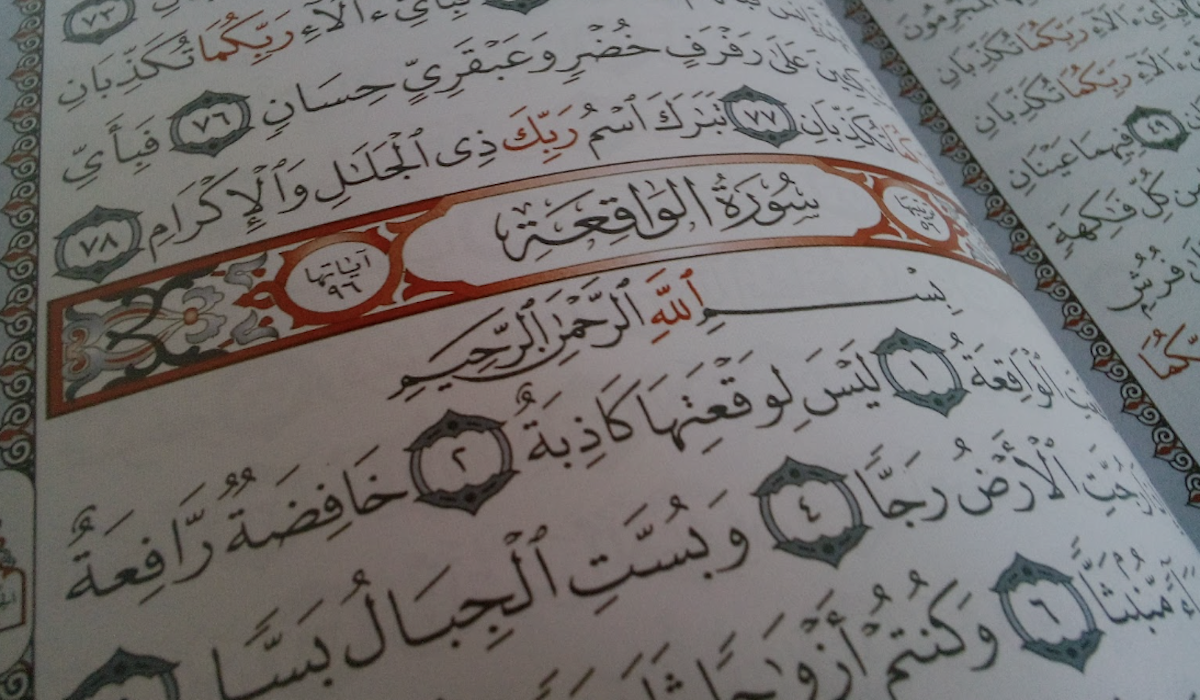 ٧٣
فَبِأَيِّ ءَالَآءِ رَبِّكُمَا تُكَذِّبَانِ
عَلَىٰ رَفْرَفٍ خُضْرٍ وَعَبْقَرِيٍّ حِسَانٍ ٧٦ فَبِأَيِّ
تُكَذِّبَانِ ٧٧ تَبَٰرَكَ ٱسْمُ رَبِّكَ ذِى ٱلْجَلَٰلِ وَٱلْإِكْرَامِ ٧٨
سُورَةُ الوَاقِعَةِ
آيَاتُهَا
٩٦
بِسْمِ ٱللَّهِ ٱلرَّحْمَٰنِ ٱلرَّحِيمِ
ٱلْوَاقِعَةُ ١ لَيْسَ لِوَقْعَتِهَا كَاذِبَةٌ ٢ خَافِضَةٌ رَّافِعَةٌ
رُجَّتِ ٱلْأَرْضُ رَجًّا ٤ وَبُسَّتِ ٱلْجِبَالُ بَسًّا
مُّنۢبَثًّا ٦ وَكُنتُمْ أَزْوَٰجًا
رَبِّكُمَا تُكَذِّبَانِ
رَبِّكُمَا تُكَذِّبَانِ
فِيهِمَا عَيْنَانِ
كُلِّ فَٰكِهَةٍ
فُرُشٍۭ